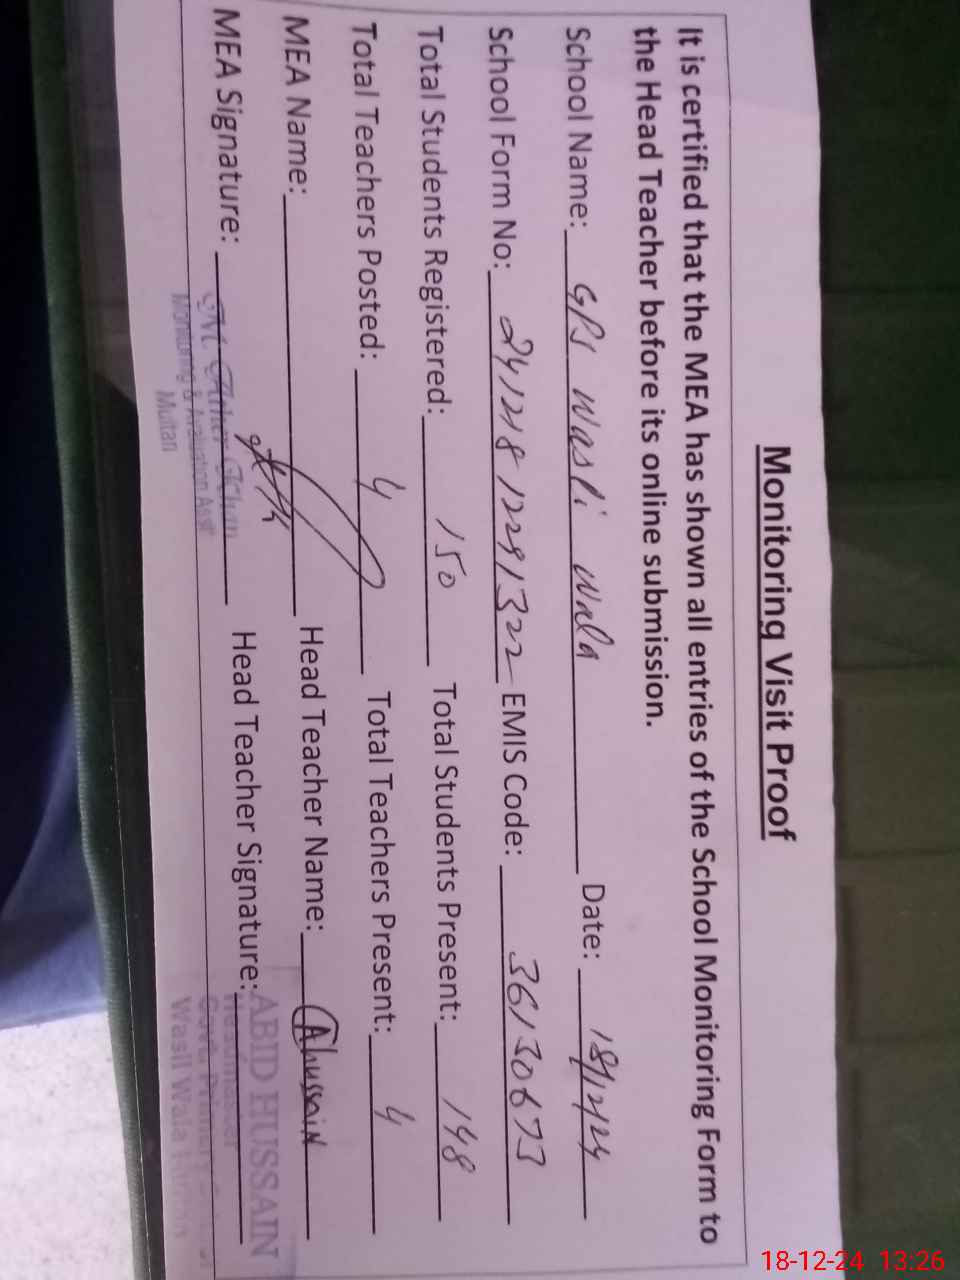 Monitoring Visit Proof
It is certified that the MEA has shown all entries of the School Monitoring Form to
the Head Teacher before its online submission.
School Name: GPS Wasli Wala Date: 18/12/24
School Form No: 24121812291322 EMIS Code: 36130673
Total Students Registered: 150 Total Students Present: 148
Total Teachers Posted: 4 Total Teachers Present: 4
MEA Name: Head Teacher Name: Ahussain
MEA Signature: Head Teacher Signature:
Monitoring & Avaluation Asst
Multan
ABID HUSSAIN
Headmaster
Wasli Wala
18-12-24 13:26